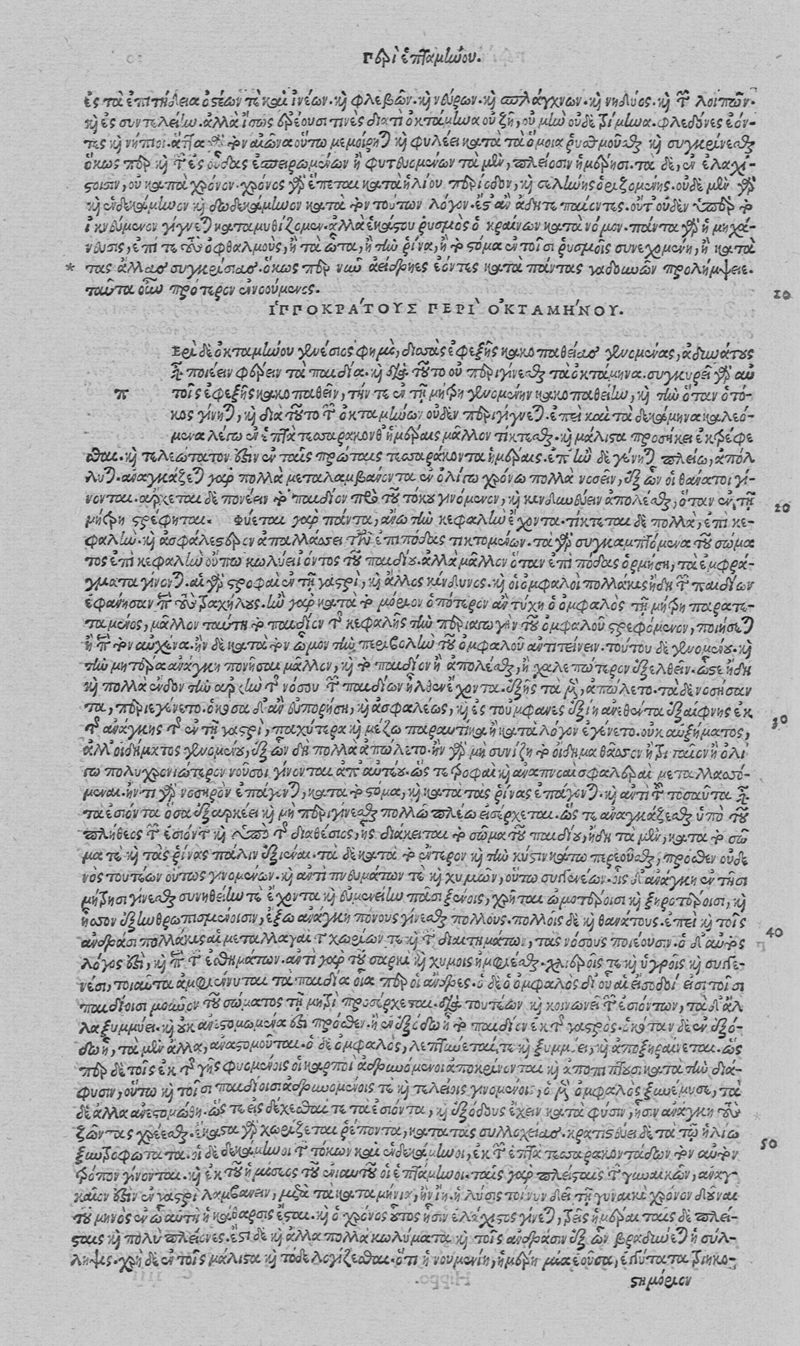 Περὶ ἑπταμήνου.
ἐς τὰ ἐπιτήδεια ὀστέων τε καὶ ἰνέων. καὶ φλεβῶν. καὶ νεύρων. καὶ σπλάγχνων. καὶ νηδύος. καὶ τῶν λοιπῶν.
καὶ ἐς συντελείην. ἀλλὰ ἴσως ἐρέουσι τινὲς διατὶ ὀκτάμηνα οὐ ζῇ, οὐ μὴν οὐδὲ ἑξάμηνα. φλεδόνες ἐόν-
τες καὶ νήπιοι. τὸν αἰῶνα οὕτω μεμοίρηται καὶ φυλέει κατὰ τὰ ὅμοια ῥυσμοῦσθαι καὶ συγκρίνεσθαι
ὅκως περ καὶ τῶν ἐς σπειρωμένων ἢ φυτευομένων τὰ μὲν, πλείοσιν ἡμέρῃσι. τὰ δὲ, ἐν ἐλαχί-
στοισιν, οὐ κατὰ χρόνον. χρόνος γὰρ ἕπεται κατὰ ἡλίου περίοδον, καὶ σελήνης ὁριζομένης. οὐδὲ μὴν γὰρ
καὶ ἑνδεκάμηνον καὶ δωδεκάμηνον κατὰ τὸν τούτων λόγον. οὔτ' οὐδὲν ὑπὲρ τὸ
ἱκνεύμενον γίγνεται καταμυθίζομεν. ἀλλὰ ἑκάστου ῥυσμὸς ὁ κραίνων κατὰ νόμον. πάντα γὰρ ἢ μηχά-
νευσις, ἐπί τε τοὺς ὀφθαλμοὺς, ἢ τὰ ὦτα, ἢ τὴν ῥῖνα, ἢ τὸ στόμα ἐν τοῖσι ῥυσμοῖς συνεχομένη, ἢ κατὰ
* τὰς ἄλλας συγκρίσιας. ὅκως περ ἀείδρηες ἐόντες κατὰ πάντας
ταῦτα οὕτω πρότερον ἐνοούμενος.
ἹΠΠΟΚΡΑΤΟΥΣ ΠΕΡΙ ὈΚΤΑΜΗΝΟΥ.
10
Περὶ δὲ ὀκταμήνου γενέσιος φημὶ, δισσὰς ἐφεξῆς κακοπαθείας γενομένας, ἀδυνάτους
εἶναι φέρειν τὰ παιδία. καὶ διὰ τοῦτο οὐ περιγίνεσθαι τὰ ὀκτάμηνα. συγκυρεῖ γὰρ αὐ-
τοῖς ἐφεξῆς κακοπαθεῖν, τήν τε ἐν τῇ μήτρῃ γενομένην κακοπαθείην, καὶ τὴν ὅταν ὁ τό-
κος γίνηται, καὶ διὰ τοῦτο τῶν ὀκταμήνων οὐδὲν περιγίγνεται. ἐπεὶ καὶ τὰ δεκάμηνα καλεό-
μενα λέγω ἐν ἑπτὰ τεσσαρακονθημέραις μᾶλλον τίκτεσθαι. καὶ μάλιστα προσήκει ἐκτρέφε-
σθαι. καὶ τελεώτατον ἐστὶν ἐν ταῖς πρώταις τεσσαράκοντα ἡμέραις. ἐπ' ἣν δὲ γένηται πλείω, ἀπόλ-
λυται. ἀναγκάζεται γὰρ πολλὰ μεταλαμβάνοντα ἐν ὀλίγῳ χρόνῳ πολλὰ νοσεῖν, ἐξ ὧν οἱ θάνατοι γί-
νονται. ἄρχεται δὲ πονέειν τὸ παιδίον πρὸ τοῦ τόκου γινόμενον, καὶ κινδυνεύειν ἀπολέσθαι, ὅταν ἐν τῇ
20
μήτρῃ στρέφηται. φύεται γὰρ πάντα, ἄνω τὴν κεφαλὴν ἔχοντα. τίκτεται δὲ πολλὰ, ἐπὶ κε-
φαλήν. καὶ ἀσφαλέστερον ἀπαλλάσσει τῶν ἐπὶ πόδας τικτομένων. τὰ γὰρ συγκαμπτόμενα τοῦ σώμα-
τος ἐπὶ κεφαλὴν οὔπω κωλύει ἰόντος τοῦ παιδίου. ἀλλὰ μᾶλλον ὅταν ἐπὶ πόδας ὁρμήσῃ, τὰ ἐμφρά-
γματα γίνονται. αἱ γὰρ στροφαὶ ἐν τῇ γαστρὶ, καὶ ἄλλος κίνδυνος. καὶ οἱ ὀμφαλοὶ πολλάκις ἤδη τῶν παιδίων
ἐφάνησαν περὶ τοὺς τραχήλους. ἢν γὰρ κατὰ τὸ μόριον ὁπότερον ἂν τύχῃ ὁ ὀμφαλὸς τῇ μήτρῃ παρατε-
ταμένος, μᾶλλον ταύτῃ τὸ παιδίον τῆς κεφαλῆς τὴν περιαγωγὴν τοῦ ὀμφαλοῦ στρεφόμενον, ποιήσεται
ἢ περὶ τὸν αὐχένα. ἢν δὲ κατὰ τὸν ὦμον τὴν περιβολὴν τοῦ ὀμφαλοῦ ἀντιτείνειν. τούτου δὲ γενομένου. καὶ
τὴν μητέρα ἀνάγκη πονῆσαι μᾶλλον, καὶ τὸ παιδίον ἢ ἀπολέσθαι, ἢ χαλεπώτερον ἐξελθεῖν. ὥστε ἤδη
καὶ πολλὰ ἔνδον τὴν ἀρχὴν τῆς νόσου τῶν παιδίων ἦλθον ἔχοντα. ἐξ ἧς τὰ μὲν, ἀπώλετο. τὰ δὲ νοσήσαν-
τα, περιεγένετο. ὁκόσα δ' ἂν εὐπορήσῃ, καὶ ἀσφαλέως, καὶ ἐς τοὐμφανὲς ἐξίῃ ἀνεθέντα ἐξαίφνης ἐκ
30
τῆς ἀνάγκης τῆς ἐν τῇ γαστρὶ, παχύτερα καὶ μέζω παραυτίκα ἢ κατὰ λόγον ἐγένετο. οὐκ αὐξήματος,
ἀλλ' οἰδήματος γενομένου, ἐξ ὧν δὴ πολλὰ ἀπώλετο. ἢν γὰρ μὴ συνίζῃ τὸ οἴδημα θᾶσσον ἢ τριταῖον ἢ ὀλί-
γῳ πολυχρονιώτερον νοῦσοι γίνονται ἀπ' αὐτέου. ὥς τε τροφαὶ καὶ ἀναπνοαὶ σφαλεραὶ μεταλλασσό-
μεναι. ἤν τι γὰρ νοσηρὸν ἐπάγωνται, κατὰ τὸ στόμα, καὶ κατὰ τὰς ῥῖνας ἐπάγονται. καὶ ἀντὶ τοῦ τοσαῦτα εἶναι
τὰ ἐσιόντα ὅσα ἐξαρκέει καὶ μὴ περιγίνεσθαι πολλῷ πλέω εἰσέρχεται. ὥς τε ἀναγκάζεσθαι ὑπὸ τοῦ
πλήθεος τῶν ἐσιόντων καὶ ὑπὸ τῆς διαθέσιος, ἧς διάκειται τὸ σῶμα τοῦ παιδίου, ἤδη τὰ μὲν, κατὰ τὸ στό-
μα τε καὶ τὰς ῥῖνας πάλιν ἐξιέναι. τὰ δὲ κατὰ τὸ ἔντερον καὶ τὴν κύστιν κάτω περεοῦσθαι, πρόσθεν οὐδε-
νὸς τουτέων οὕτως γινομένων. καὶ ἀντὶ πνευμάτων τε καὶ χυμῶν, οὕτω συγγενέων. οἷς δ' ἀνάγκη ἐν τῇσι
μήτρῃσι γίνεσθαι συνηθείην τε ἔχοντα καὶ εὐμενείην πᾶσι ξένοις, χρῆται ὠμοτέροισι καὶ ξηροτέροισι, καὶ
ἧσσον ἐξηνθρωπισμένοισιν, ἐξ ὧν ἀνάγκη πόνους γίνεσθαι πολλούς. πολλοῖς δὲ καὶ θανάτους. ἐπεὶ καὶ τοῖς
40
ἀνδράσι πολλάκις αἱ μεταλλαγαὶ τῶν χωρίων τε καὶ τῶν διαιτημάτων, τὰς νόσους ποιέουσιν. ὁ δ' αὐτὸς
λόγος ἐστὶ, καὶ περὶ τῶν ἐσθημάτων. ἀντὶ γὰρ τοῦ σαρκὶ καὶ χυμοῖς ἠμφιέσθαι. χλιεροῖς τε καὶ ὑγροῖς καὶ συγγε-
νέσι, τοιαῦτα ἀμφιέννυται τὰ παιδία οἷα περ οἱ ἄνδρες. ὁ δὲ ὀμφαλὸς δι' οὗ αἱ εἴσοδοι εἰσι τοῖσι
παιδίοισι μοῦνον τοῦ σώματος τῇ μήτρῃ προσέρχεται. διὰ τουτέων καὶ κοινωνεῖ τῶν ἐσιόντων, τὰ δ' ἄλ-
λα ξυμμύει. καὶ οὐκ ἀνεστομωμένα ἐστὶ πρόσθεν. ἢ ἐν ἐξόδῳ ᾖ τὸ παιδίον ἐκ τῆς γαστρός. ὁκόταν δὲ ἐν ἐξό-
δῳ ᾖ, τὰ μὲν ἄλλα, ἀναστομοῦται. ὁ δὲ ὀμφαλὸς, λεπτύνεταί, τε καὶ ξυμμύει, καὶ ἀποξηραίνεται. ὡς
περ δὲ τοῖς ἐκ τῆς γῆς φυομένοις οἱ καρποὶ ἁδρυνόμενοι ἀποκρίνονται καὶ ἀποπίπτουσι κατὰ τὴν διά-
φυσιν, οὕτω καὶ τοῖσι παιδίοισι ἁδρυνομένοις τε καὶ τελείοις γινομένοις, ὁ μὲν ὀμφαλὸς ξυνέμυσε, τὰ
δὲ ἄλλα ἀνεστομώθη. ὥς τε εἰσδέχεσθαί τε τὰ ἐσιόντα, καὶ ἐξόδους ἔχειν κατὰ φύσιν, ᾗσιν ἀνάγκη τοὺς
ζῶντας χρέεσθαι. ἕκαστα γὰρ χωρίζεται ῥέποντα, κατὰ τὰς συλλοχείας. κρατιστεύει δὲ τὰ τῷ ἡλίῳ
50
οἱ δὲ δεκάμηνοι τῶν τόκων καὶ ἑνδεκάμηνοι, ἐκ τῶν ἑπτὰ τεσσαρακοντάδων τὸν αὐτὸν
τρόπον γίνονται. καὶ ἐκ τοῦ ἡμίσεος τοῦ ἐνιαυτοῦ οἱ ἑπτάμηνοι. ταῖς γὰρ πλείσταις τῶν γυναικῶν, ἀναγ-
καῖον ἐστὶν ἐν γαστρὶ λαμβάνειν, μετὰ τὰ καταμήνια, δεῖ τῇ γυναικὶ χρόνον δοῦναι
τοῦ μηνὸς ἐν ᾧ αὐτῇ ἡ κάθαρσις ἔσται. καὶ ὁ χρόνος οὗτος ᾗσιν ἐλάχιστος γίνεται, τρεῖς ἡμέραι. ταῖς δὲ πλεί-
σταις καὶ πολὺ πλείονες. ἔστι δὲ καὶ ἄλλα πολλὰ κωλύματα καὶ τοῖς ἀνδράσιν ἐξ ὧν βραδύνεται ἡ σύλ-
ληψις. χρὴ δὲ ἐν τοῖς μάλιστα καὶ τόδε λογίζεσθαι. ὅτι ἡ νουμηνίη, ἡμέρη μία ἐοῦσα, ἐγγύτατα τριηκο-
στημόριον